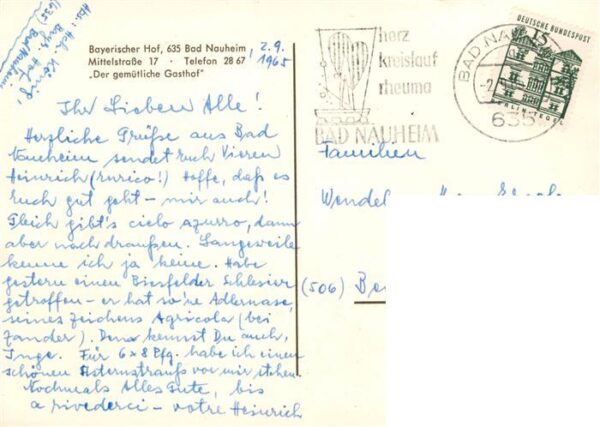 Abs.: Hch. König,
(635) Bayr. Hof,
Bad Nauheim
Bayerischer Hof, 635 Bad Nauheim
Mittelstraße 17 · Telefon 28 67
„Der gemütliche Gasthof"
2.9.
1965
herz
kreislauf
rheuma
BAD NAUHEIM
BAD NAU
-2.
635
DEUTSCHE BUNDESPOST
15
BERLIN-TEGEL
Ihr Lieben Alle!
Herzliche Grüße aus Bad
Nauheim sendet Euch Vieren
Heinrich (Enrico!) Hoffe, daß es
Euch gut geht – mir auch!
Gleich gibt's cielo azurro, dann
aber nach draußen. Langeweile
kenne ich ja keine. Habe
gestern einen Biesfelder Schlesier
getroffen – er hat so'ne Adlernase,
seines Zeichens Agricola (bei
Zander). Den kennst Du auch,
Inge. Für 6x8 Pfg. habe ich einen
schönen Asternstrauß vor mir stehen.
Nochmals Alles Gute, bis
a rivederci – votre Heinrich
Familien
Wendel
(506) Be